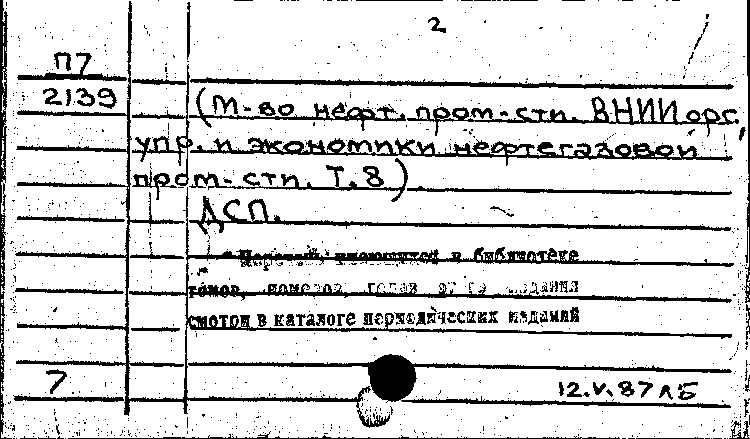 2
П7
2139
(М-во нефт. пром-сти. ВНИИ орг.,
упр. и экономики нефтегазовой
пром-сти. Т. 8)
ДСП.
имеющихся в библиотеке
томов, номеров, годов издания
смотри в каталоге периодических изданий
7
12.V.87 ЛБ